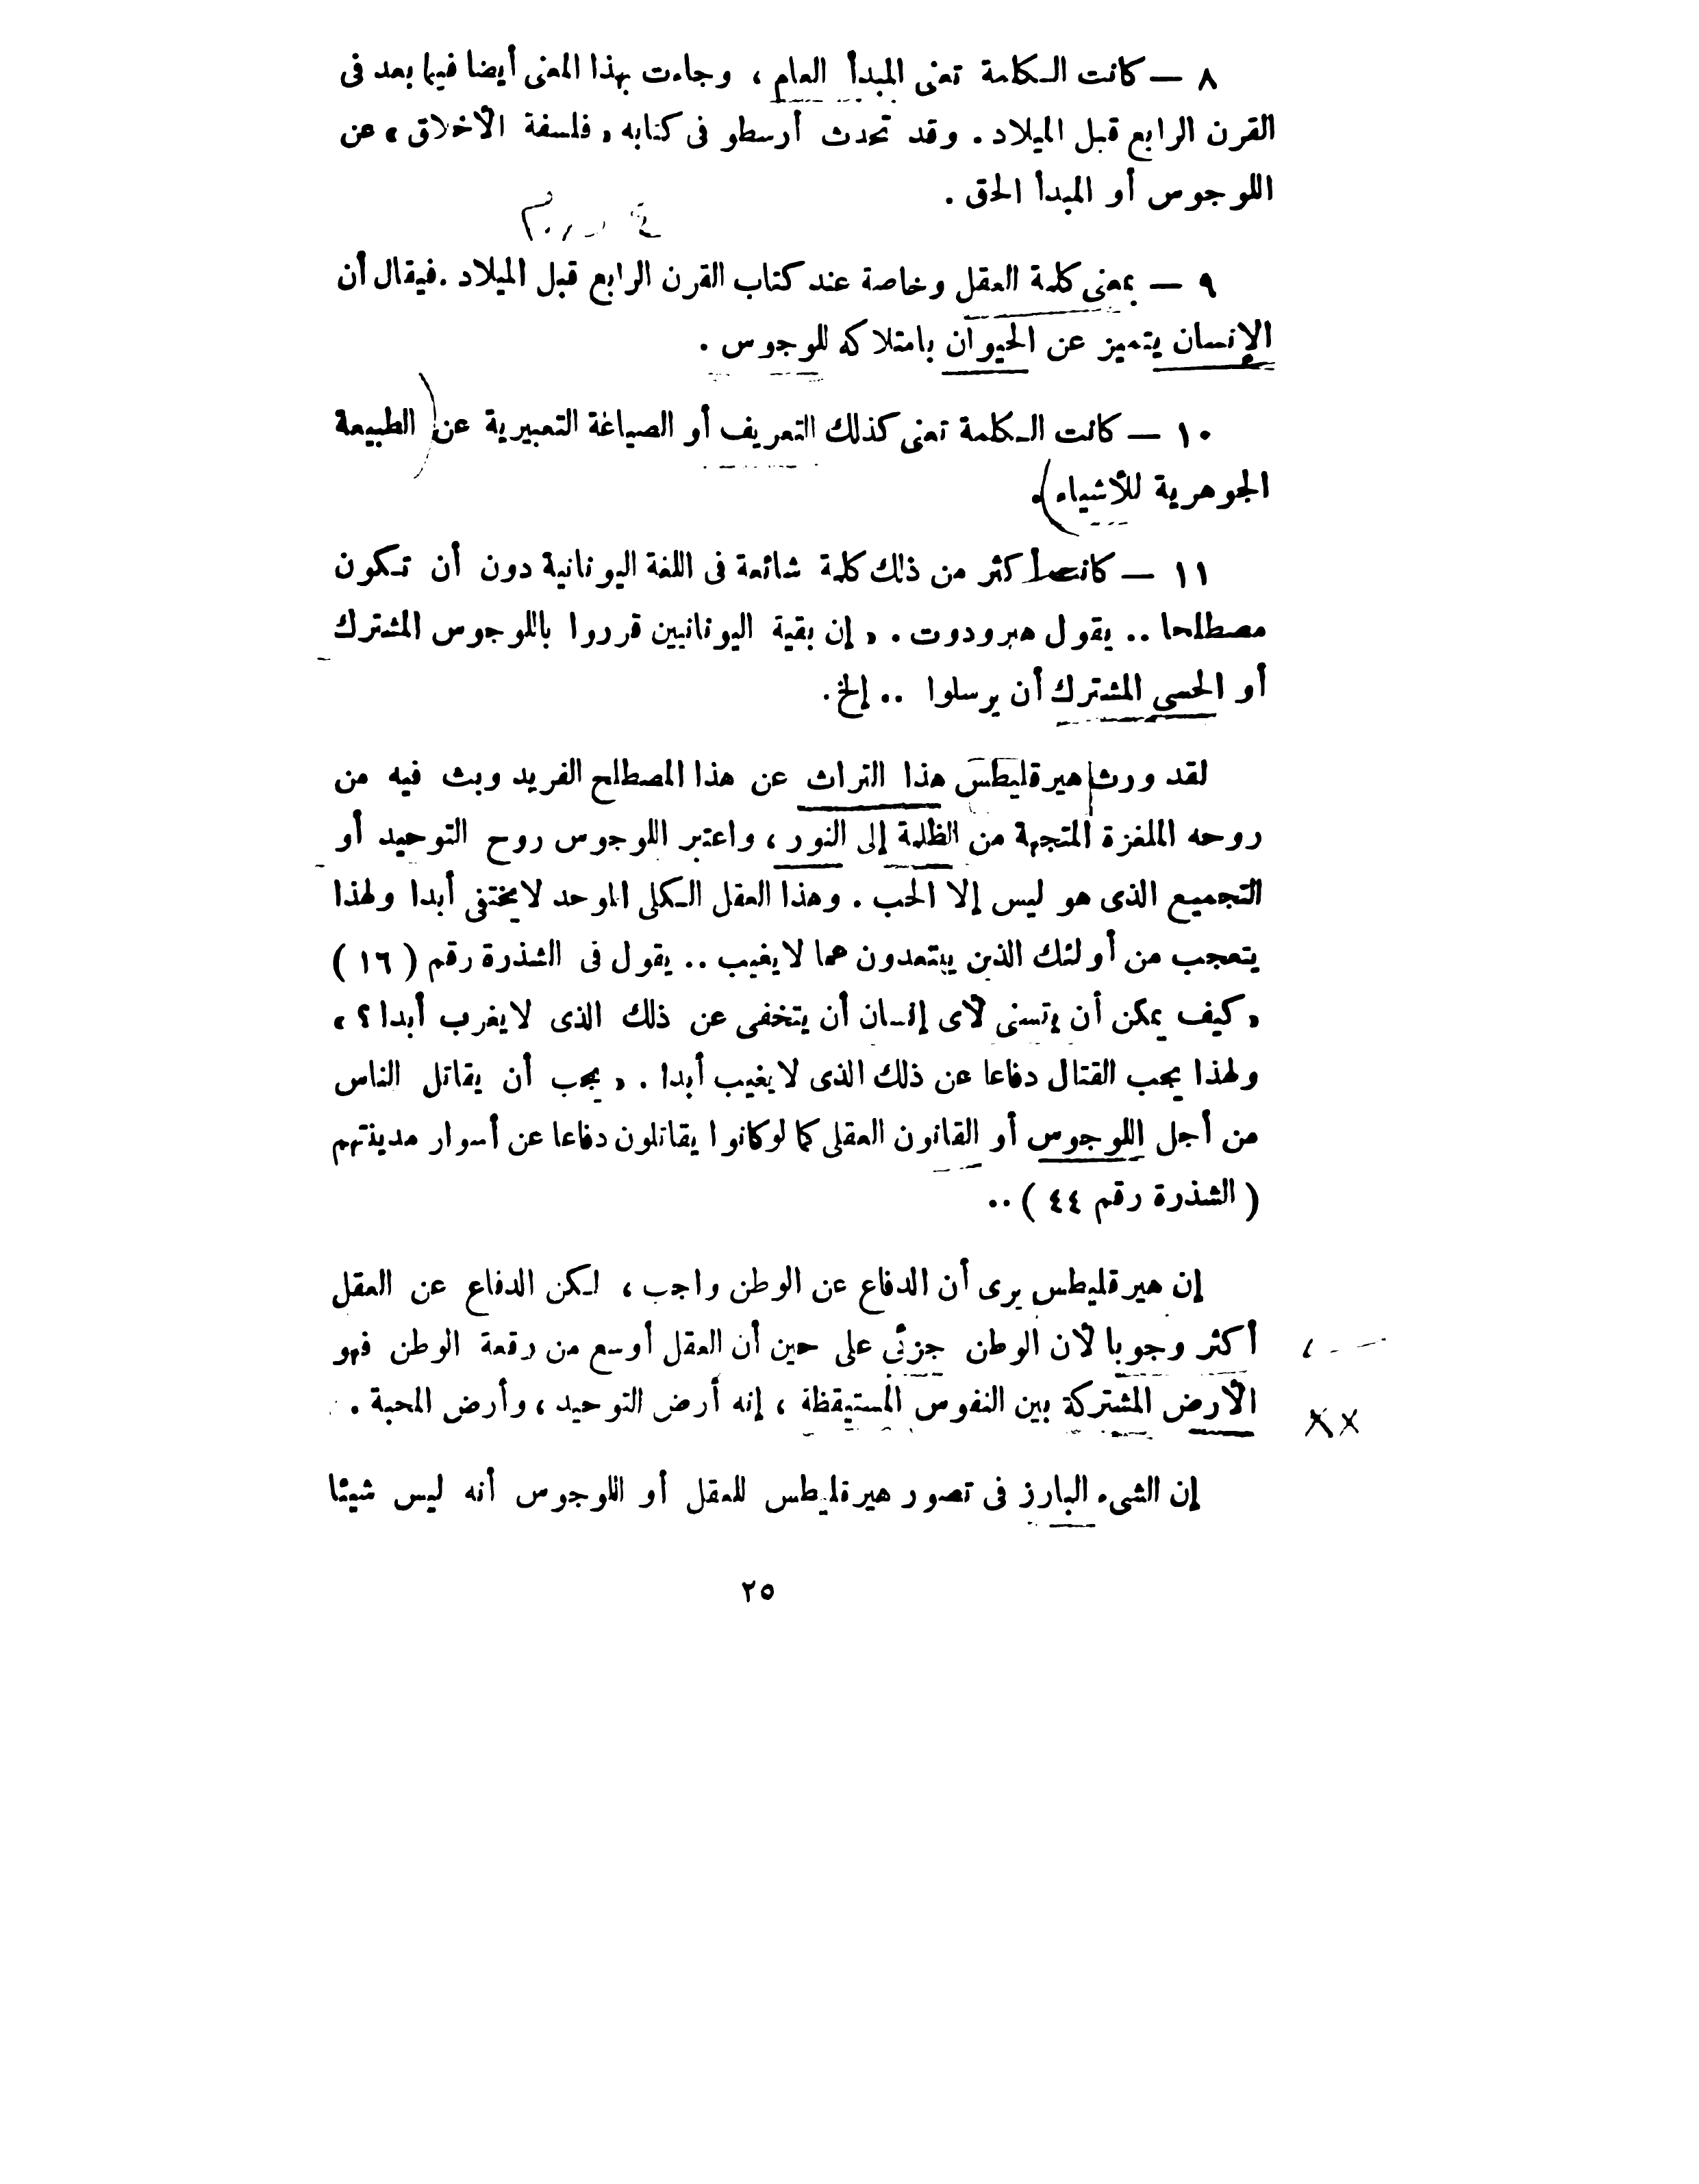 ٨ — كانت الكلمة تعنى المبدأ العام ، وجاءت بهذا المعنى أيضا فيما بعد فى
القرن الرابع قبل الميلاد . وقد تحدث أرسطو فى كتابه « فلسفة الأخلاق » عن
اللوجوس أو المبدأ الحق .
٩ — بمعنى كلمة العقل وخاصة عند كتاب القرن الرابع قبل الميلاد . فيقال أن
الإنسان يتميز عن الحيوان بامتلاكه للوجوس .
١٠ — كانت الكلمة تعنى كذلك التعريف أو الصياغة التعبيرية عن ( الطبيعة
الجوهرية للأشياء ) .
١١ — كانت أكثر من ذلك كلمة شائعة فى اللغة اليونانية دون أن تكون
مصطلحا .. يقول هيرودوت . « إن بقية اليونانيين قرروا باللوجوس المشترك
أو الحسى المشترك أن يرسلوا .. إلخ .
لقد ورث هيرقليطس هذا التراث عن هذا المصطلح الفريد وبث فيه من
روحه الملغزة المتجهة من الظلمة إلى النور ، واعتبر اللوجوس روح التوحيد أو
التجميع الذى هو ليس إلا الحب . وهذا العقل الكلى الموحد لايختفى أبدا ولهذا
يتعجب من أولئك الذين يبتعدون عما لايغيب .. يقول فى الشذرة رقم ( ١٦ )
« كيف يمكن أن يتسنى لأى إنسان أن يتخفى عن ذلك الذى لايغرب أبدا ؟ »
ولهذا يجب القتال دفاعا عن ذلك الذى لايغيب أبدا . « يجب أن يقاتل الناس
من أجل اللوجوس أو القانون العقلى كما لوكانوا يقاتلون دفاعا عن أسوار مدينتهم
( الشذرة رقم ٤٤ ) ..
إن هيرقليطس يرى أن الدفاع عن الوطن واجب ، لكن الدفاع عن العقل
أكثر وجوبا لأن الوطن جزئى على حين أن العقل أوسع من رقعة الوطن فهو
الأرض المشتركة بين النفوس المستيقظة ، إنه أرض التوحيد ، وأرض المحبة .
إن الشىء البارز فى تصور هيرقليطس للعقل أو اللوجوس أنه ليس شيئا
٢٥